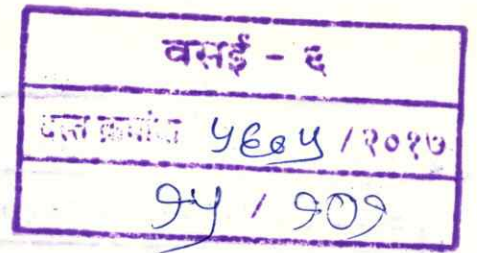 वसई - ६
दस्त क्रमांक ५६०५ / २०१७
१५ / १०१